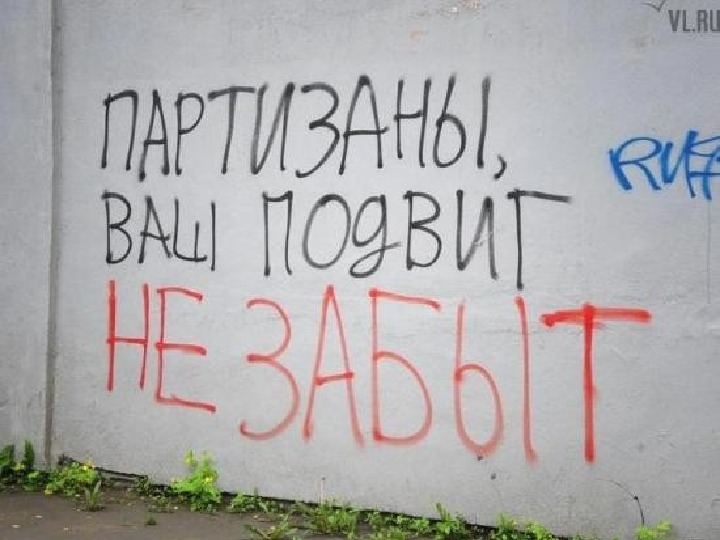 VL.RU
ПАРТИЗАНЫ,
ВАШ ПОДВИГ
НЕ ЗАБЫТ